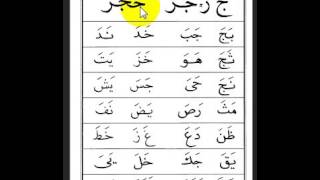 جَ رَ جَرَ حَجَرَ
بَجَ جَبَ خَدَ نَدَ
ثَجَ هَوَ خَزَ يَتَ
نَجَ حَىَ جَسَ يَشَ
مَثَ رَصَ يَضَ نَفَ
ظَنَ دَعَ غَزَ خَطَ
يَقَ جَكَ خَلَ يَىَ